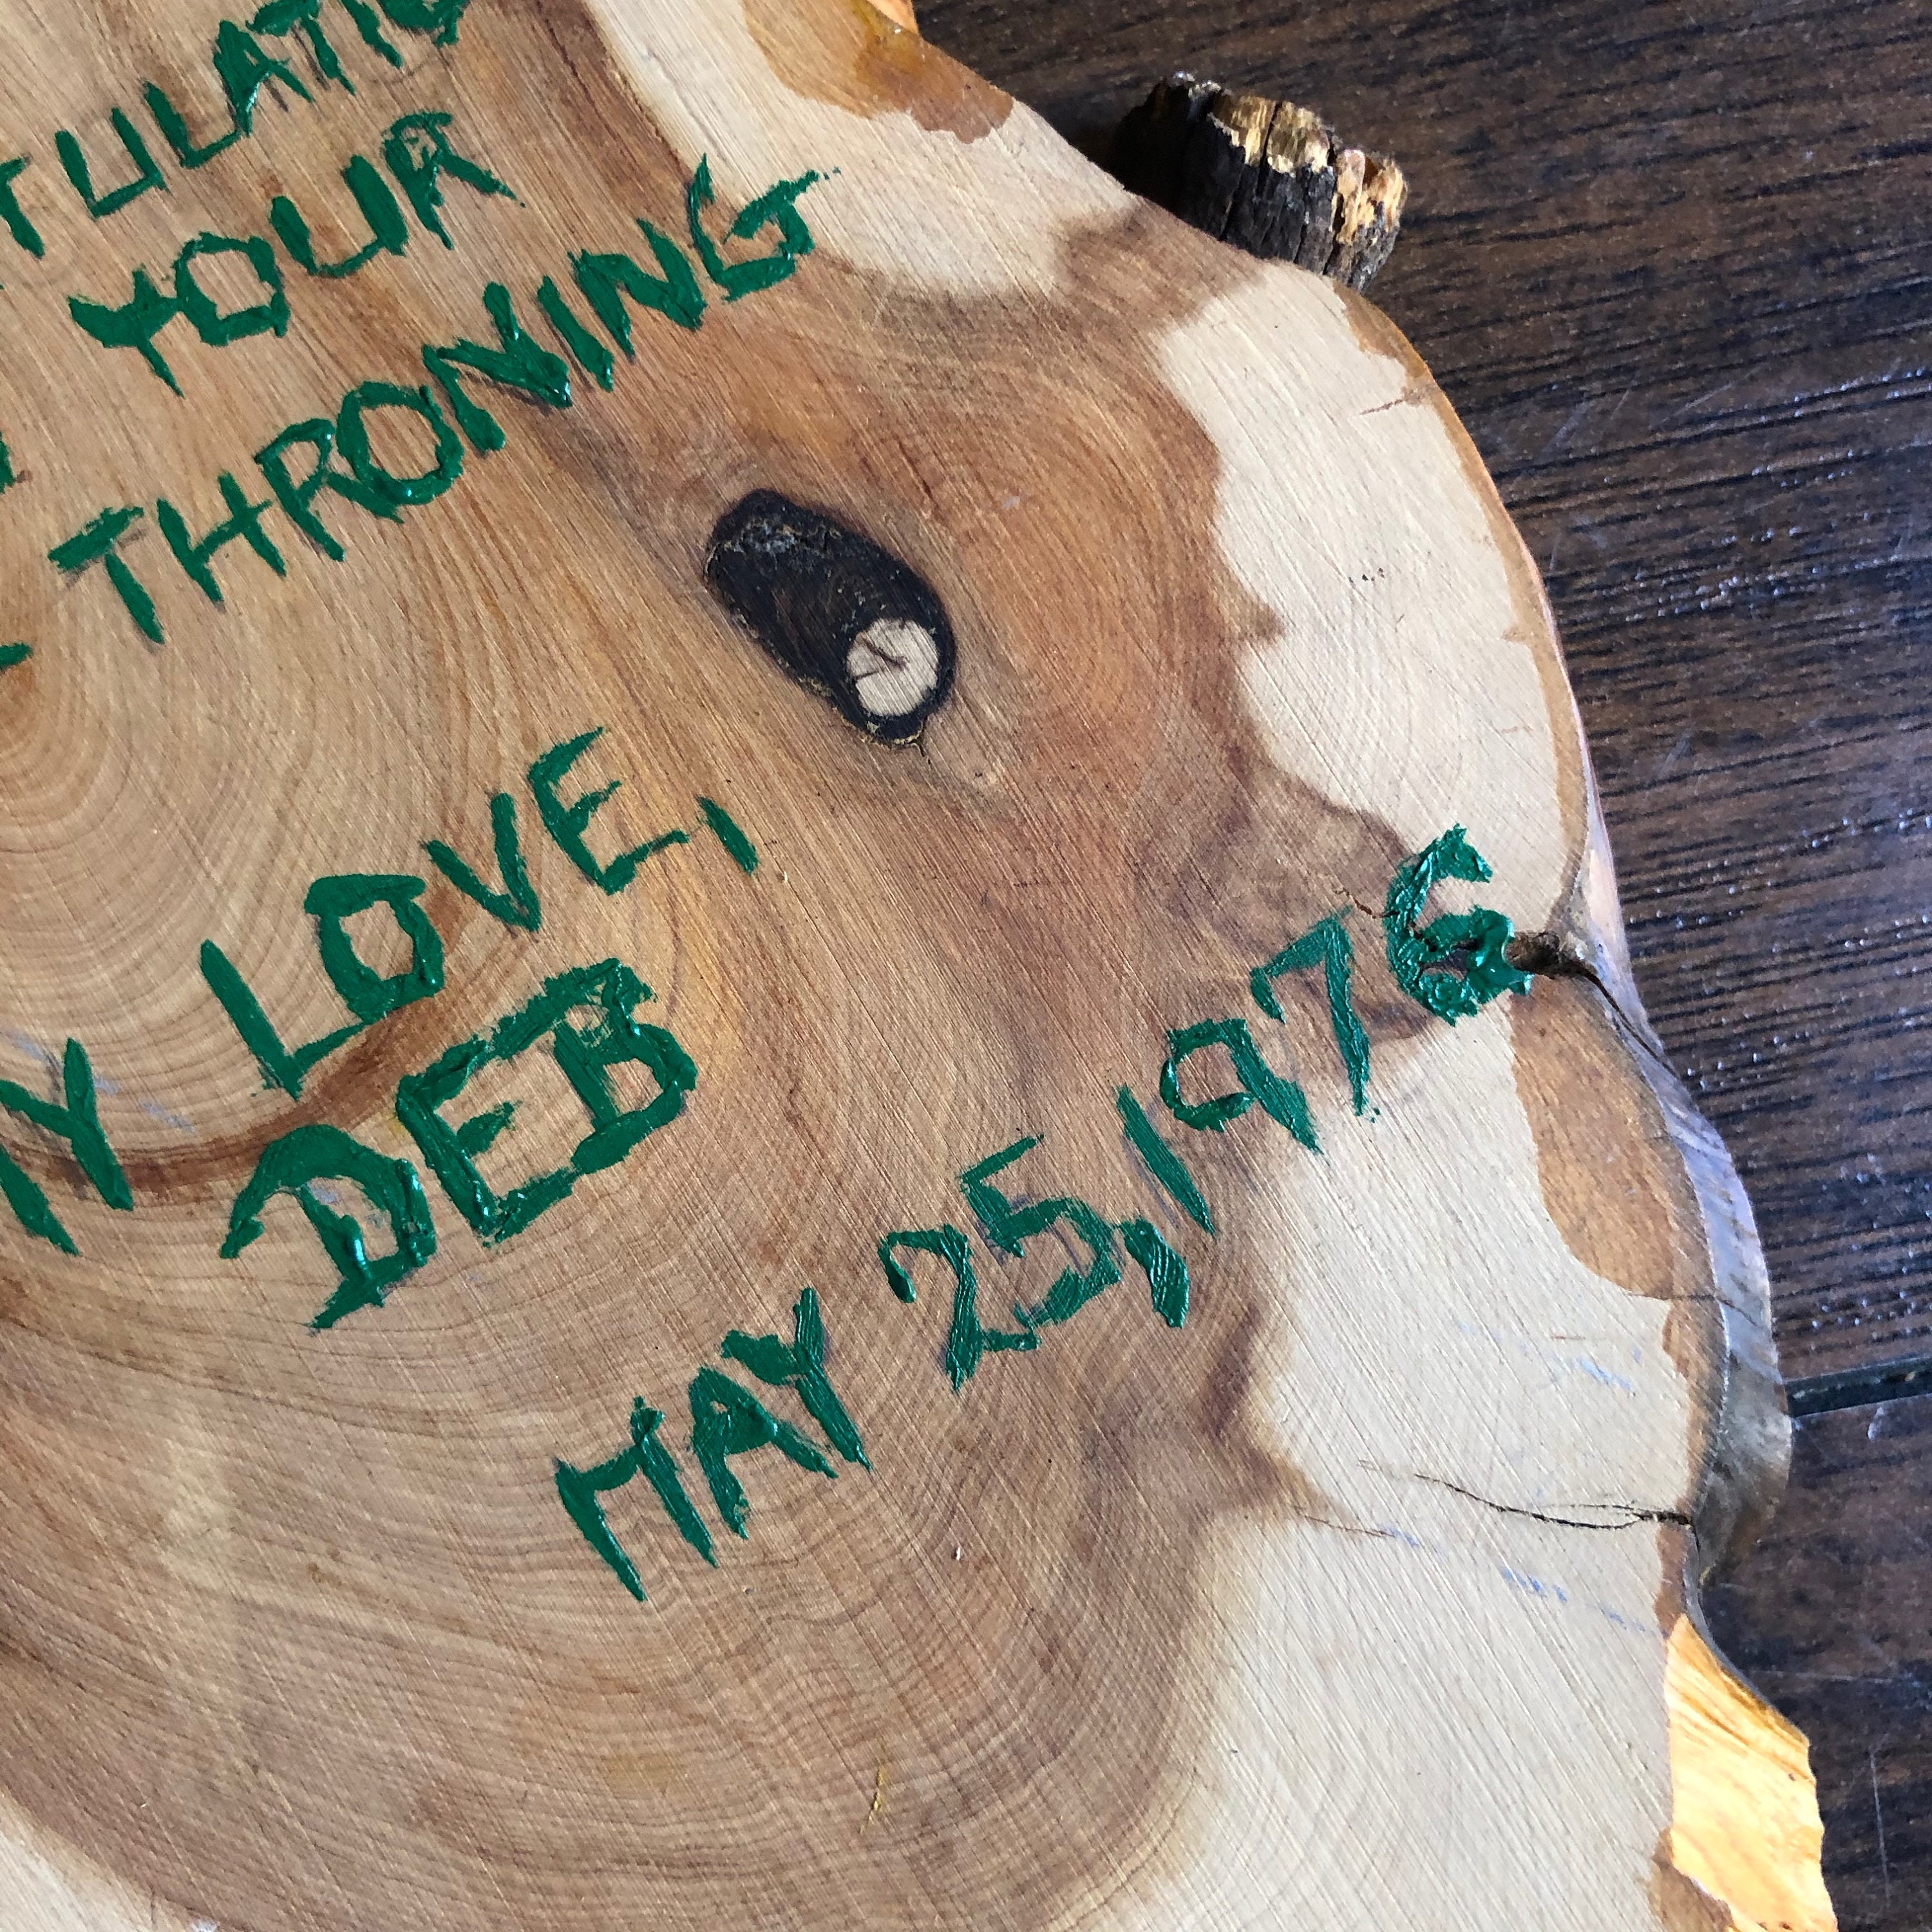 TULATIO
YOUR
THRONING
Y LOVE,
DEB
MAY 25, 1976